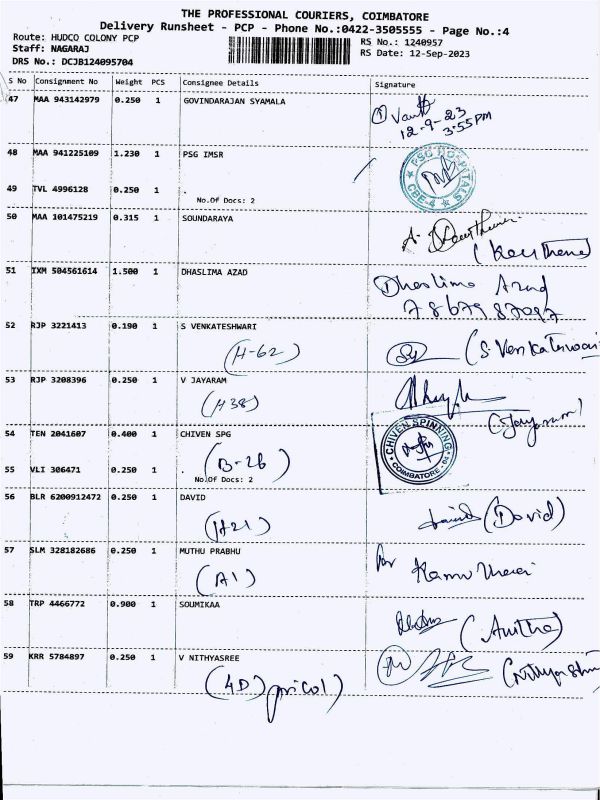 THE PROFESSIONAL COURIERS, COIMBATORE
Delivery Runsheet - PCP - Phone No.:0422-3505555 - Page No.:4
Route: HUDCO COLONY PCP
Staff: NAGARAJ
DRS No.: DCJB124095704
RS No.: 1240957
RS Date: 12-Sep-2023
S No Consignment No Weight PCS Consignee Details Signature
47 MAA 943142979 0.250 1 GOVINDARAJAN SYAMALA
12-9-23
3:55PM
48 MAA 941225109 1.230 1 PSG IMSR
PSG HOSPITALS
CBE-4
49 TVL 4996128 0.250 1 .
No.Of Docs: 2
50 MAA 101475219 0.315 1 SOUNDARAYA
51 IXM 504561614 1.500 1 DHASLIMA AZAD
Dhaslima Azad
52 RJP 3221413 0.190 1 S VENKATESHWARI
(H-62) (S Venkateswari
53 RJP 3208396 0.250 1 V JAYARAM
(H38) (Jayaram)
54 TEN 2041607 0.400 1 CHIVEN SPG
CHIVEN SPINNING
COIMBATORE
(B-26)
55 VLI 306471 0.250 1 .
No.Of Docs: 2
56 BLR 6200912472 0.250 1 DAVID
(H21) (David)
57 SLM 328182686 0.250 1 MUTHU PRABHU
(A1)
58 TRP 4466772 0.900 1 SOUMIKAA
(Anitha)
59 KRR 5784897 0.250 1 V NITHYASREE
(4D) pricol)